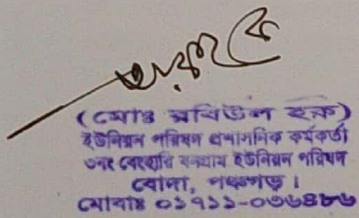 (মোঃ রবিউল হক)
ইউনিয়ন পরিষদ প্রশাসনিক কর্মকর্তা
৩নং বেংহারি বনগ্রাম ইউনিয়ন পরিষদ
বোদা, পঞ্চগড়।
মোবাঃ ০১৭১১-০৩৬৪৮৬